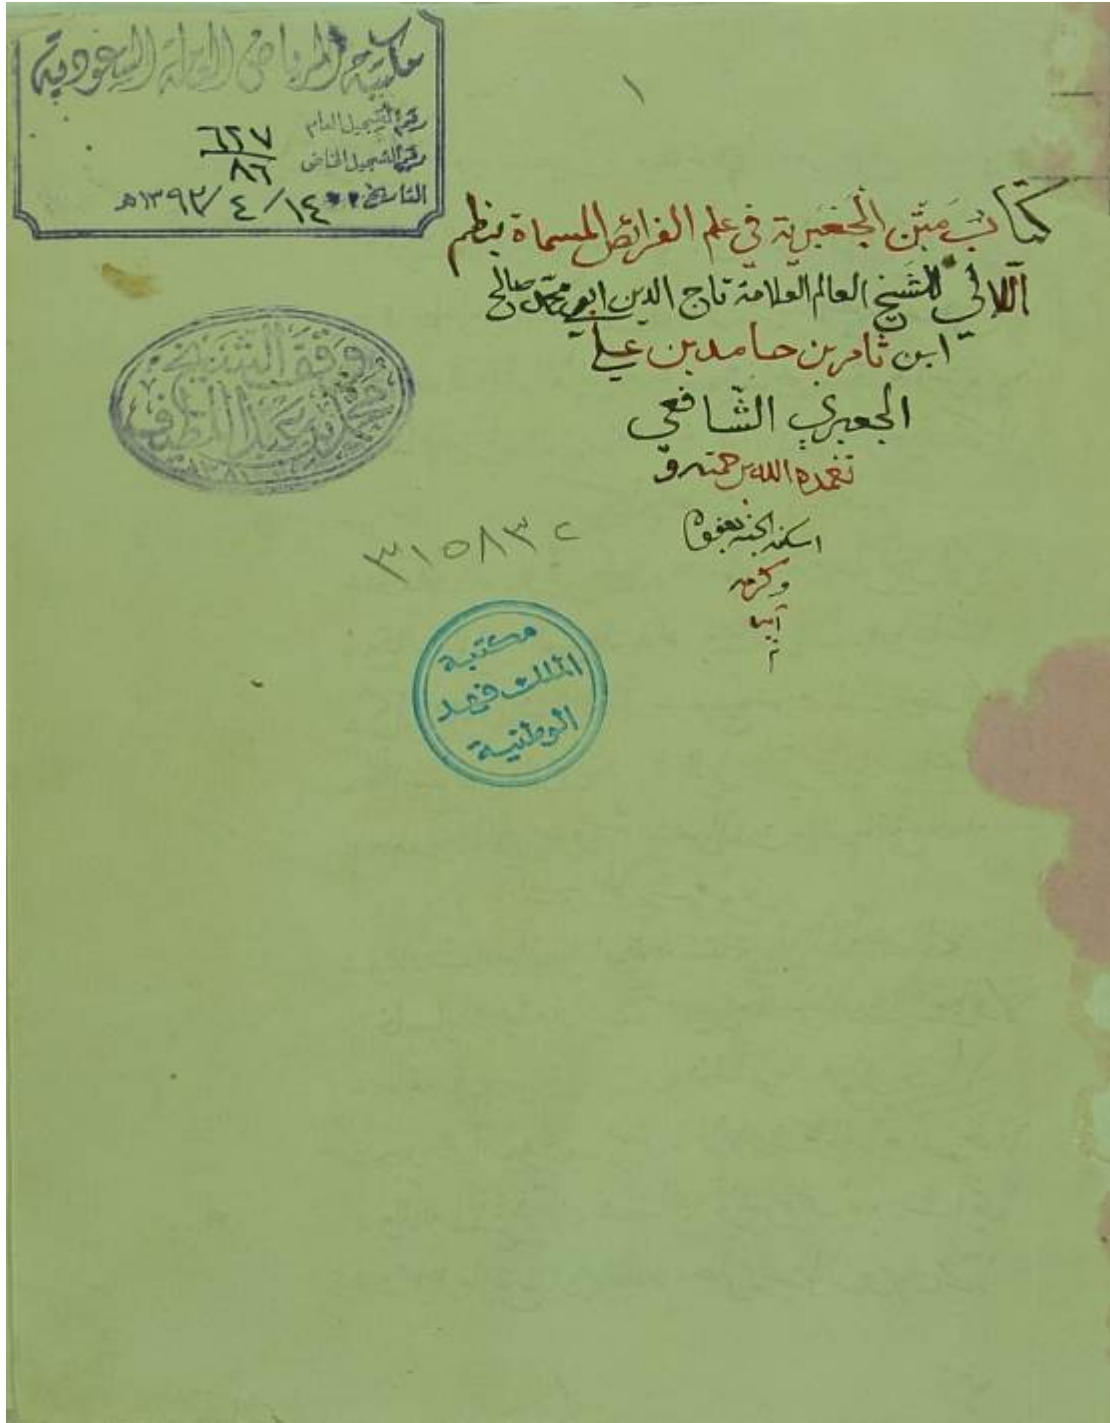 مكتبة الرياض العامة السعودية
رقم التسجيل العام ٦٢٧
رقم التسجيل الخاص ٨٦
التاريخ ١٤ / ٤ / ١٣٩٣هـ
١
كتاب متن الجعبرية في علم الفرائض المسماة بنظم
اللآلي للشيخ العالم العلامة تاج الدين ابي محمد صالح
ابن ثامر بن حامد بن علي
الجعبري الشافعي
تغمده الله برحمته و
اسكنه الجنة بعفوه
وكرمه
آمين
م
وقف الشيخ
محمد بن عبد اللطيف
٣١٥٨٣٢
مكتبة
الملك فهد
الوطنية